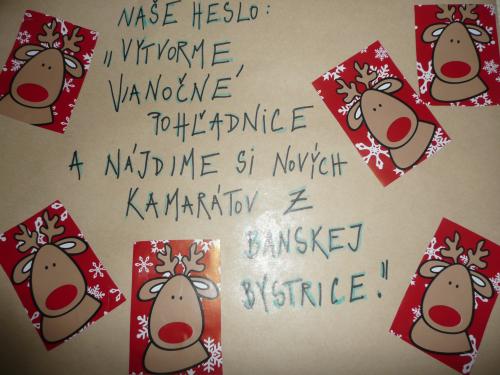 NAŠE HESLO:
„VYTVORME
VIANOČNÉ
POHĽADNICE
A NÁJDIME SI NOVÝCH
KAMARÁTOV Z
BANSKEJ
BYSTRICE!"